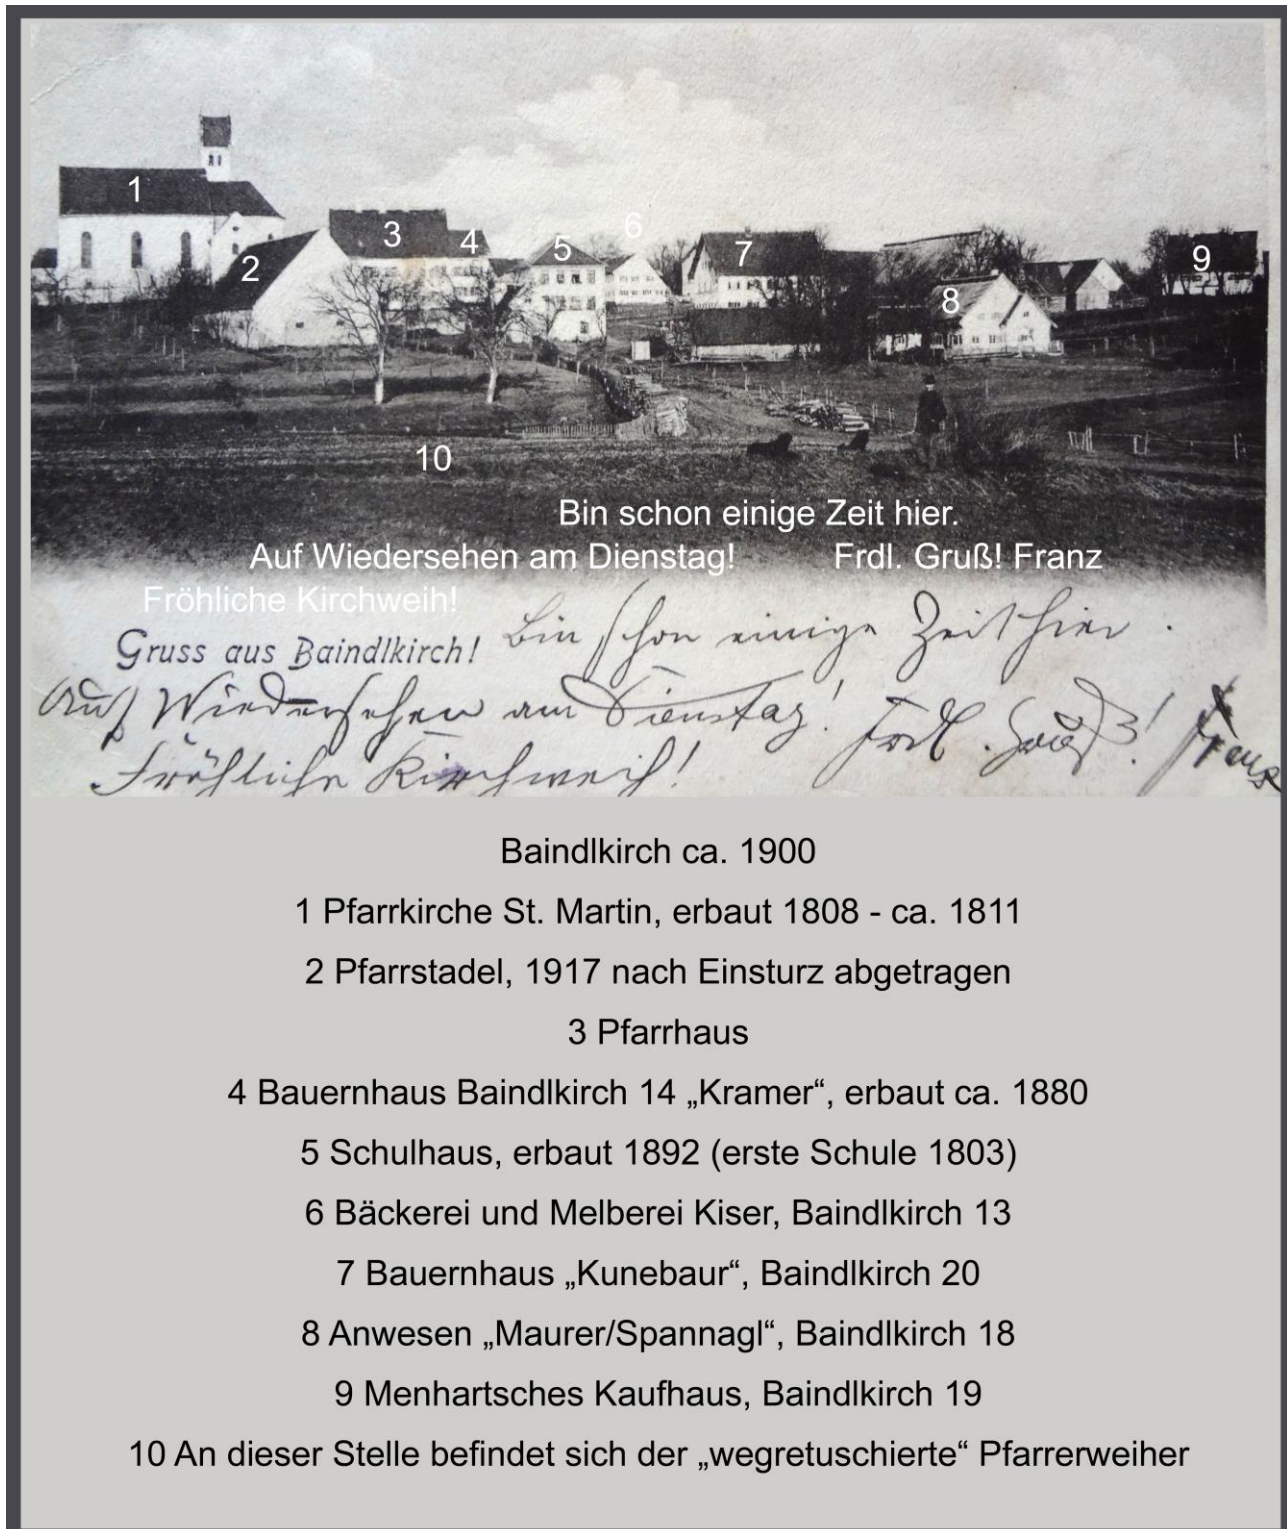 1
2
3
4
5
6
7
8
9
10
Bin schon einige Zeit hier.
Auf Wiedersehen am Dienstag! Frdl. Gruß! Franz
Fröhliche Kirchweih!
Gruss aus Baindlkirch! Bin schon einige Zeit hier.
Auf Wiedersehen am Dienstag! Frdl. Gruß! Franz
Fröhliche Kirchweih!
Baindlkirch ca. 1900
1 Pfarrkirche St. Martin, erbaut 1808 - ca. 1811
2 Pfarrstadel, 1917 nach Einsturz abgetragen
3 Pfarrhaus
4 Bauernhaus Baindlkirch 14 „Kramer“, erbaut ca. 1880
5 Schulhaus, erbaut 1892 (erste Schule 1803)
6 Bäckerei und Melberei Kiser, Baindlkirch 13
7 Bauernhaus „Kunebaur“, Baindlkirch 20
8 Anwesen „Maurer/Spannagl“, Baindlkirch 18
9 Menhartsches Kaufhaus, Baindlkirch 19
10 An dieser Stelle befindet sich der „wegretuschierte“ Pfarrerweiher